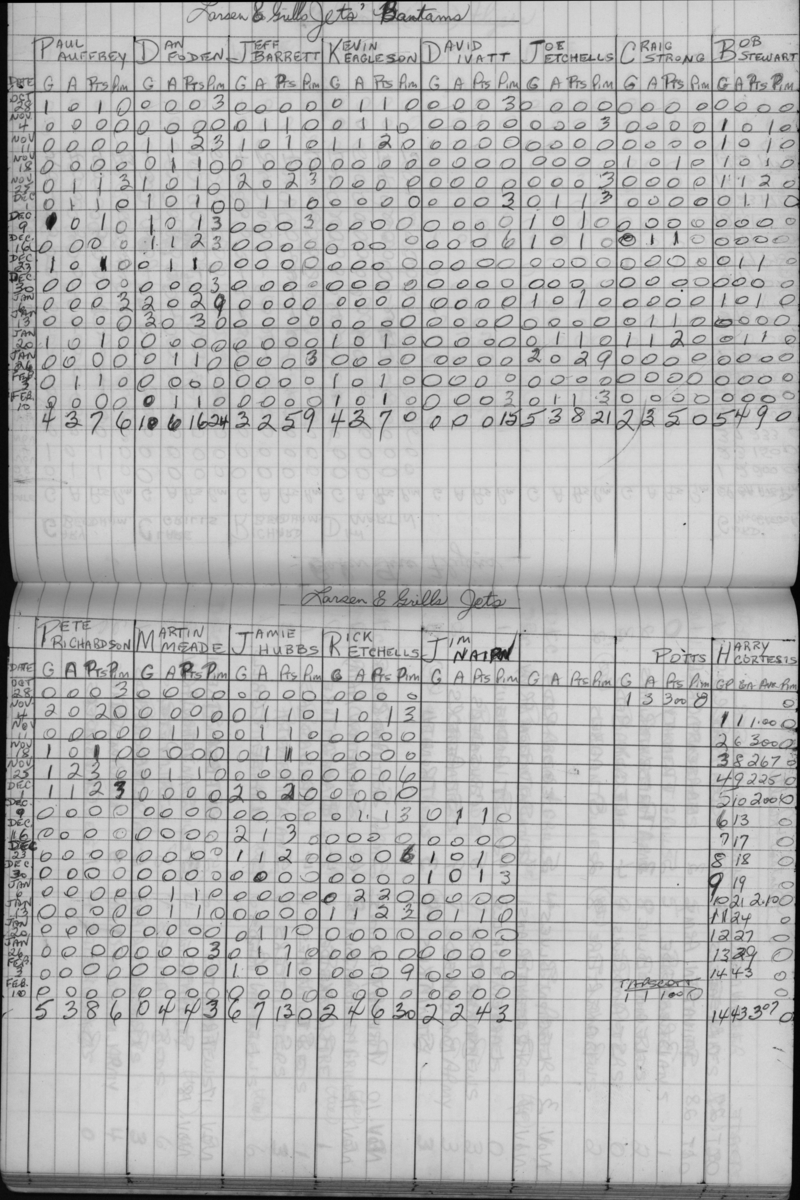 Larsen & Grills Jets' Bantams
PAUL AUFFREY DAN FODEN JEFF BARRETT KEVIN EAGLESON DAVID IVATT JOE ETCHELLS CRAIG STRONG BOB STEWART
DATE G A Pts Pim G A Pts Pim G A Pts Pim G A Pts Pim G A Pts Pim G A Pts Pim G A Pts Pim G A Pts Pim
OCT 28 1 0 1 0 0 0 0 3 0 0 0 0 0 1 1 0 0 0 0 3 0 0 0 0 0 0 0 0 0 0 0 0
NOV 4 0 0 0 0 0 0 0 0 0 1 1 0 0 1 1 0 0 0 0 0 0 0 0 3 0 0 0 0 1 0 1 0
NOV 11 0 0 0 0 1 1 2 3 1 0 1 0 1 1 2 0 0 0 0 0 0 0 0 0 0 0 0 0 1 0 1 0
NOV 18 0 0 0 0 0 1 1 0 0 0 0 0 0 0 0 0 0 0 0 0 0 0 0 0 1 0 1 0 1 0 1 0
NOV 25 0 1 1 3 1 0 1 0 2 0 2 3 0 0 0 0 0 0 0 0 0 0 0 3 0 0 0 0 1 1 2 0
DEC 1 0 1 1 0 1 0 1 0 0 1 1 0 0 0 0 0 0 0 0 3 0 1 1 3 0 0 0 0 0 1 1 0
DEC 9 1 0 1 0 1 0 1 3 0 0 0 3 0 0 0 0 0 0 0 0 1 0 1 0 0 0 0 0 0 0 0 0
DEC. 16 0 0 0 0 1 1 2 3 0 0 0 0 0 0 0 0 0 0 0 6 1 0 1 0 0 1 1 0 0 0 0 0
DEC 23 1 0 1 0 0 1 1 0 0 0 0 0 0 0 0 0 0 0 0 0 0 0 0 0 0 0 0 0 0 1 1 0
DEC. 30 0 0 0 0 0 0 0 3 0 0 0 0 0 0 0 0 0 0 0 0 0 0 0 0 0 0 0 0 0 0 0 0
JAN 6 0 0 0 3 2 0 2 9 0 0 0 0 0 0 0 0 0 0 0 0 1 0 1 0 0 0 0 0 1 0 1 0
JAN 13 0 0 0 0 3 0 3 0 0 0 0 0 0 0 0 0 0 0 0 0 0 0 0 0 0 1 1 0 0 0 0 0
JAN 20 1 0 1 0 0 0 0 0 0 0 0 0 1 0 1 0 0 0 0 0 0 1 1 0 1 1 2 0 0 1 1 0
JAN 26 0 0 0 0 0 1 1 0 0 0 0 3 0 0 0 0 0 0 0 0 2 0 2 9 0 0 0 0 0 0 0 0
FEB 3 0 1 1 0 0 0 0 0 0 0 0 0 1 0 1 0 0 0 0 0 0 0 0 0 0 0 0 0 0 0 0 0
FEB. 10 0 0 0 0 0 1 1 0 0 0 0 0 1 0 1 0 0 0 0 3 0 1 1 3 0 0 0 0 0 0 0 0
4 3 7 6 10 6 16 24 3 2 5 9 4 3 7 0 0 0 0 15 5 3 8 21 2 3 5 0 5 4 9 0
Larsen & Grills Jets
PETE RICHARDSON MARTIN MEADE JAMIE HUBBS RICK ETCHELLS JIM NAIRN POTTS HARRY CORTESIS
DATE G A Pts Pim G A Pts Pim G A Pts Pim G A Pts Pim G A Pts Pim G A Pts Pim G A Pts Pim GP GA Ave. Pim
OCT 28 0 0 0 3 0 0 0 0 0 0 0 0 0 0 0 0 1 3 3 00 8 0
NOV. 4 2 0 2 0 0 0 0 0 0 1 1 0 1 0 1 3 1 1 1.00 0
NOV 11 0 0 0 0 0 1 1 0 0 1 1 0 0 0 0 0 2 6 3 00 0
NOV 18 1 0 1 0 0 0 0 0 0 1 1 0 0 0 0 0 3 8 2 67 0
NOV. 25 1 2 3 0 0 1 1 0 0 0 0 0 0 0 0 6 4 9 2 25 0
DEC. 1 1 1 2 3 0 0 0 0 2 0 2 0 0 0 0 0 5 10 2 00 0
DEC. 9 0 0 0 0 0 0 0 0 0 0 0 0 0 1 1 3 0 1 1 0 6 13 0
DEC 16 0 0 0 0 0 0 0 0 2 1 3 0 0 0 0 0 0 0 0 7 17 0
DEC 23 0 0 0 0 0 0 0 0 1 1 2 0 0 0 0 6 1 0 1 0 8 18 0
DEC 30 0 0 0 0 0 0 0 0 0 0 0 0 0 0 0 0 1 0 1 3 9 19 0
JAN 6 0 0 0 0 0 1 1 0 0 0 0 0 0 2 2 0 0 0 0 0 10 21 2.10 0
JAN 13 0 0 0 0 0 1 1 0 0 0 0 0 1 1 2 3 0 1 1 0 11 24 0
JAN 20 0 0 0 0 0 0 0 0 0 1 1 0 0 0 0 0 0 0 0 0 12 27 0
JAN 26 0 0 0 0 0 0 0 3 0 1 1 0 0 0 0 0 0 0 0 0 13 39 0
FEB. 3 0 0 0 0 0 0 0 0 1 0 1 0 0 0 0 9 0 0 0 0 14 43 0
TAPSCOTT
FEB. 10 0 0 0 0 0 0 0 0 0 0 0 0 0 0 0 0 0 0 0 0 1 1 1 00 0
5 3 8 6 0 4 4 3 6 7 13 0 2 4 6 30 2 2 4 3 14 43 3.07 0